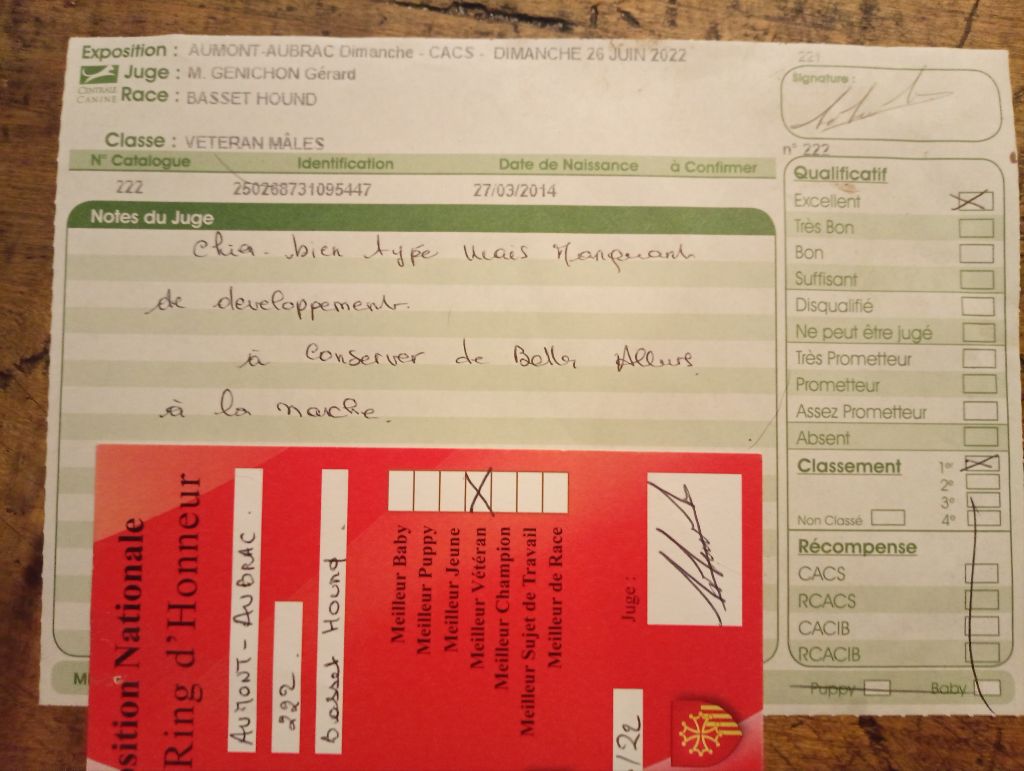 Exposition : AUMONT-AUBRAC Dimanche - CACS - DIMANCHE 26 JUIN 2022
221
CENTRALE CANINE
Juge : M. GENICHON Gérard
Race : BASSET HOUND
Signature :
Classe : VETERAN MÂLES
n° 222
N° Catalogue Identification Date de Naissance à Confirmer
222 250268731095447 27/03/2014
Notes du Juge
bien typé Mais Manquant
de developpement.
à Conserver de Belles Allures
à la marche.
Qualificatif
Excellent
Très Bon
Bon
Suffisant
Disqualifié
Ne peut être jugé
Très Prometteur
Prometteur
Assez Prometteur
Absent
Classement 1er
2e
3e
Non Classé 4e
Récompense
CACS
RCACS
CACIB
RCACIB
Puppy Baby
M
osition Nationale
Ring d'Honneur
AUMONT-AUBRAC.
222.
Basset Hound.
Meilleur Baby
Meilleur Puppy
Meilleur Jeune
Meilleur Vétéran
Meilleur Champion
Meilleur Sujet de Travail
Meilleur de Race
Juge :
/22